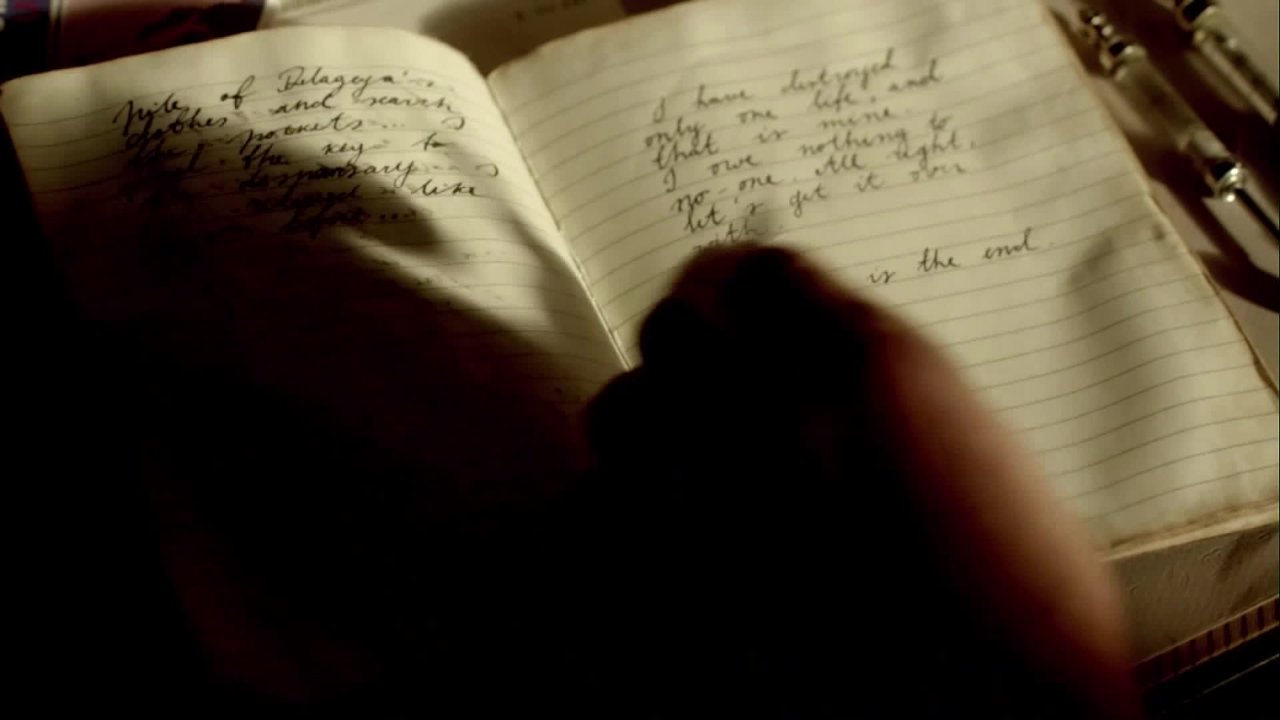 pile of Pelageya's
clothes and search
the pockets...
find the key to
dispensary
like
before...
I have destroyed
only one life, and
that is mine.
I owe nothing to
no-one. All right,
let's get it over
with.
is the end